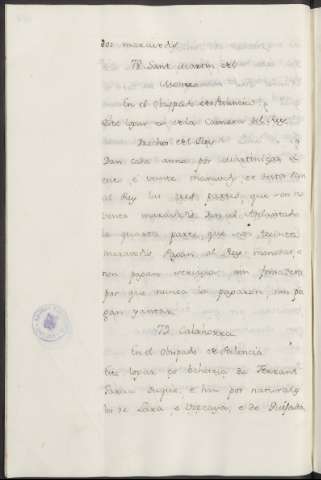 dos maravedis
Sant Martin del
Monte
En el Obispado de Palencia
Este logar es de la Camara del Rey
Derechos del Rey
Dan cada anno por martiniega
ciento e veinte maravedis
al Rey las tres partes, que son no
venta maravedis dan al Adelantado
la quarta parte, que son treinta
maravedis. Pagan al Rey monedas, e
non pagan servicios, nin fonsadera
por que nunca la pagaron, nin pa
gan yantar.
Calahorra
En el Obispado de Palencia
Este logar es behetria de Ferrand
e han por naturales
los de Lara, e Vizcaya, e de